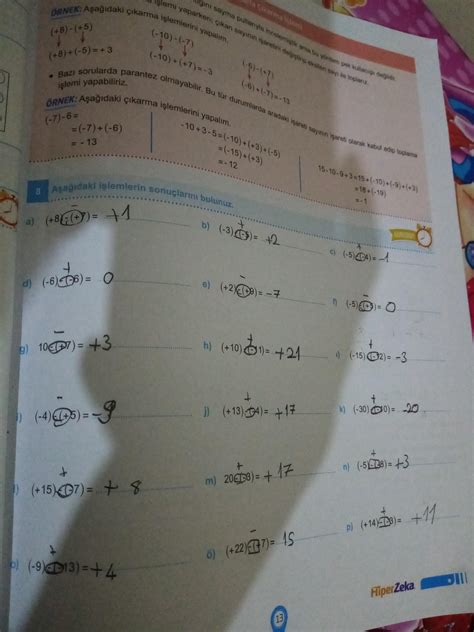 ÖRNEK: Aşağıdaki çıkarma işlemlerini yapalım.
(+8) - (+5)
(+8) + (-5) = + 3
(-10) - (-7)
(-10) + (+7) = - 3
(-6) - (+7)
(-6) + (-7) = - 13
• Bazı sorularda parantez olmayabilir. Bu tür durumlarda aradaki işareti sayının işareti olarak kabul edip toplama
işlemi yapabiliriz.
ÖRNEK: Aşağıdaki çıkarma işlemlerini yapalım.
(-7) - 6 =
= (-7) + (-6)
= - 13
- 10 + 3 - 5 = (-10) + (+3) + (-5)
= (-15) + (+3)
= - 12
15 - 10 - 9 + 3 = 15 + (-10) + (-9) + (+3)
= 18 + (-19)
= - 1
8 Aşağıdaki işlemlerin sonuçlarını bulunuz.
a) (+8) - (+7) = +1
b) (-3) = +2
c) (-5) 4) = -1
d) (-6) 6) = 0
e) (+2) - (+9) = -7
f) (-5) = 0
g) 10 - (+7) = +3
h) (+10) 11) = +21
ı) (-15) 12) = -3
i) (-4) - (+5) = -9
j) (+13) 4) = +17
k) (-30) 10) = -20
l) (+15) 7) = + 8
m) 20 = +17
n) (-5) 8) = +3
o) (-9) 13) = +4
ö) (+22) - (+7) = 15
p) (+14) 3) = +11
HiperZeka
13